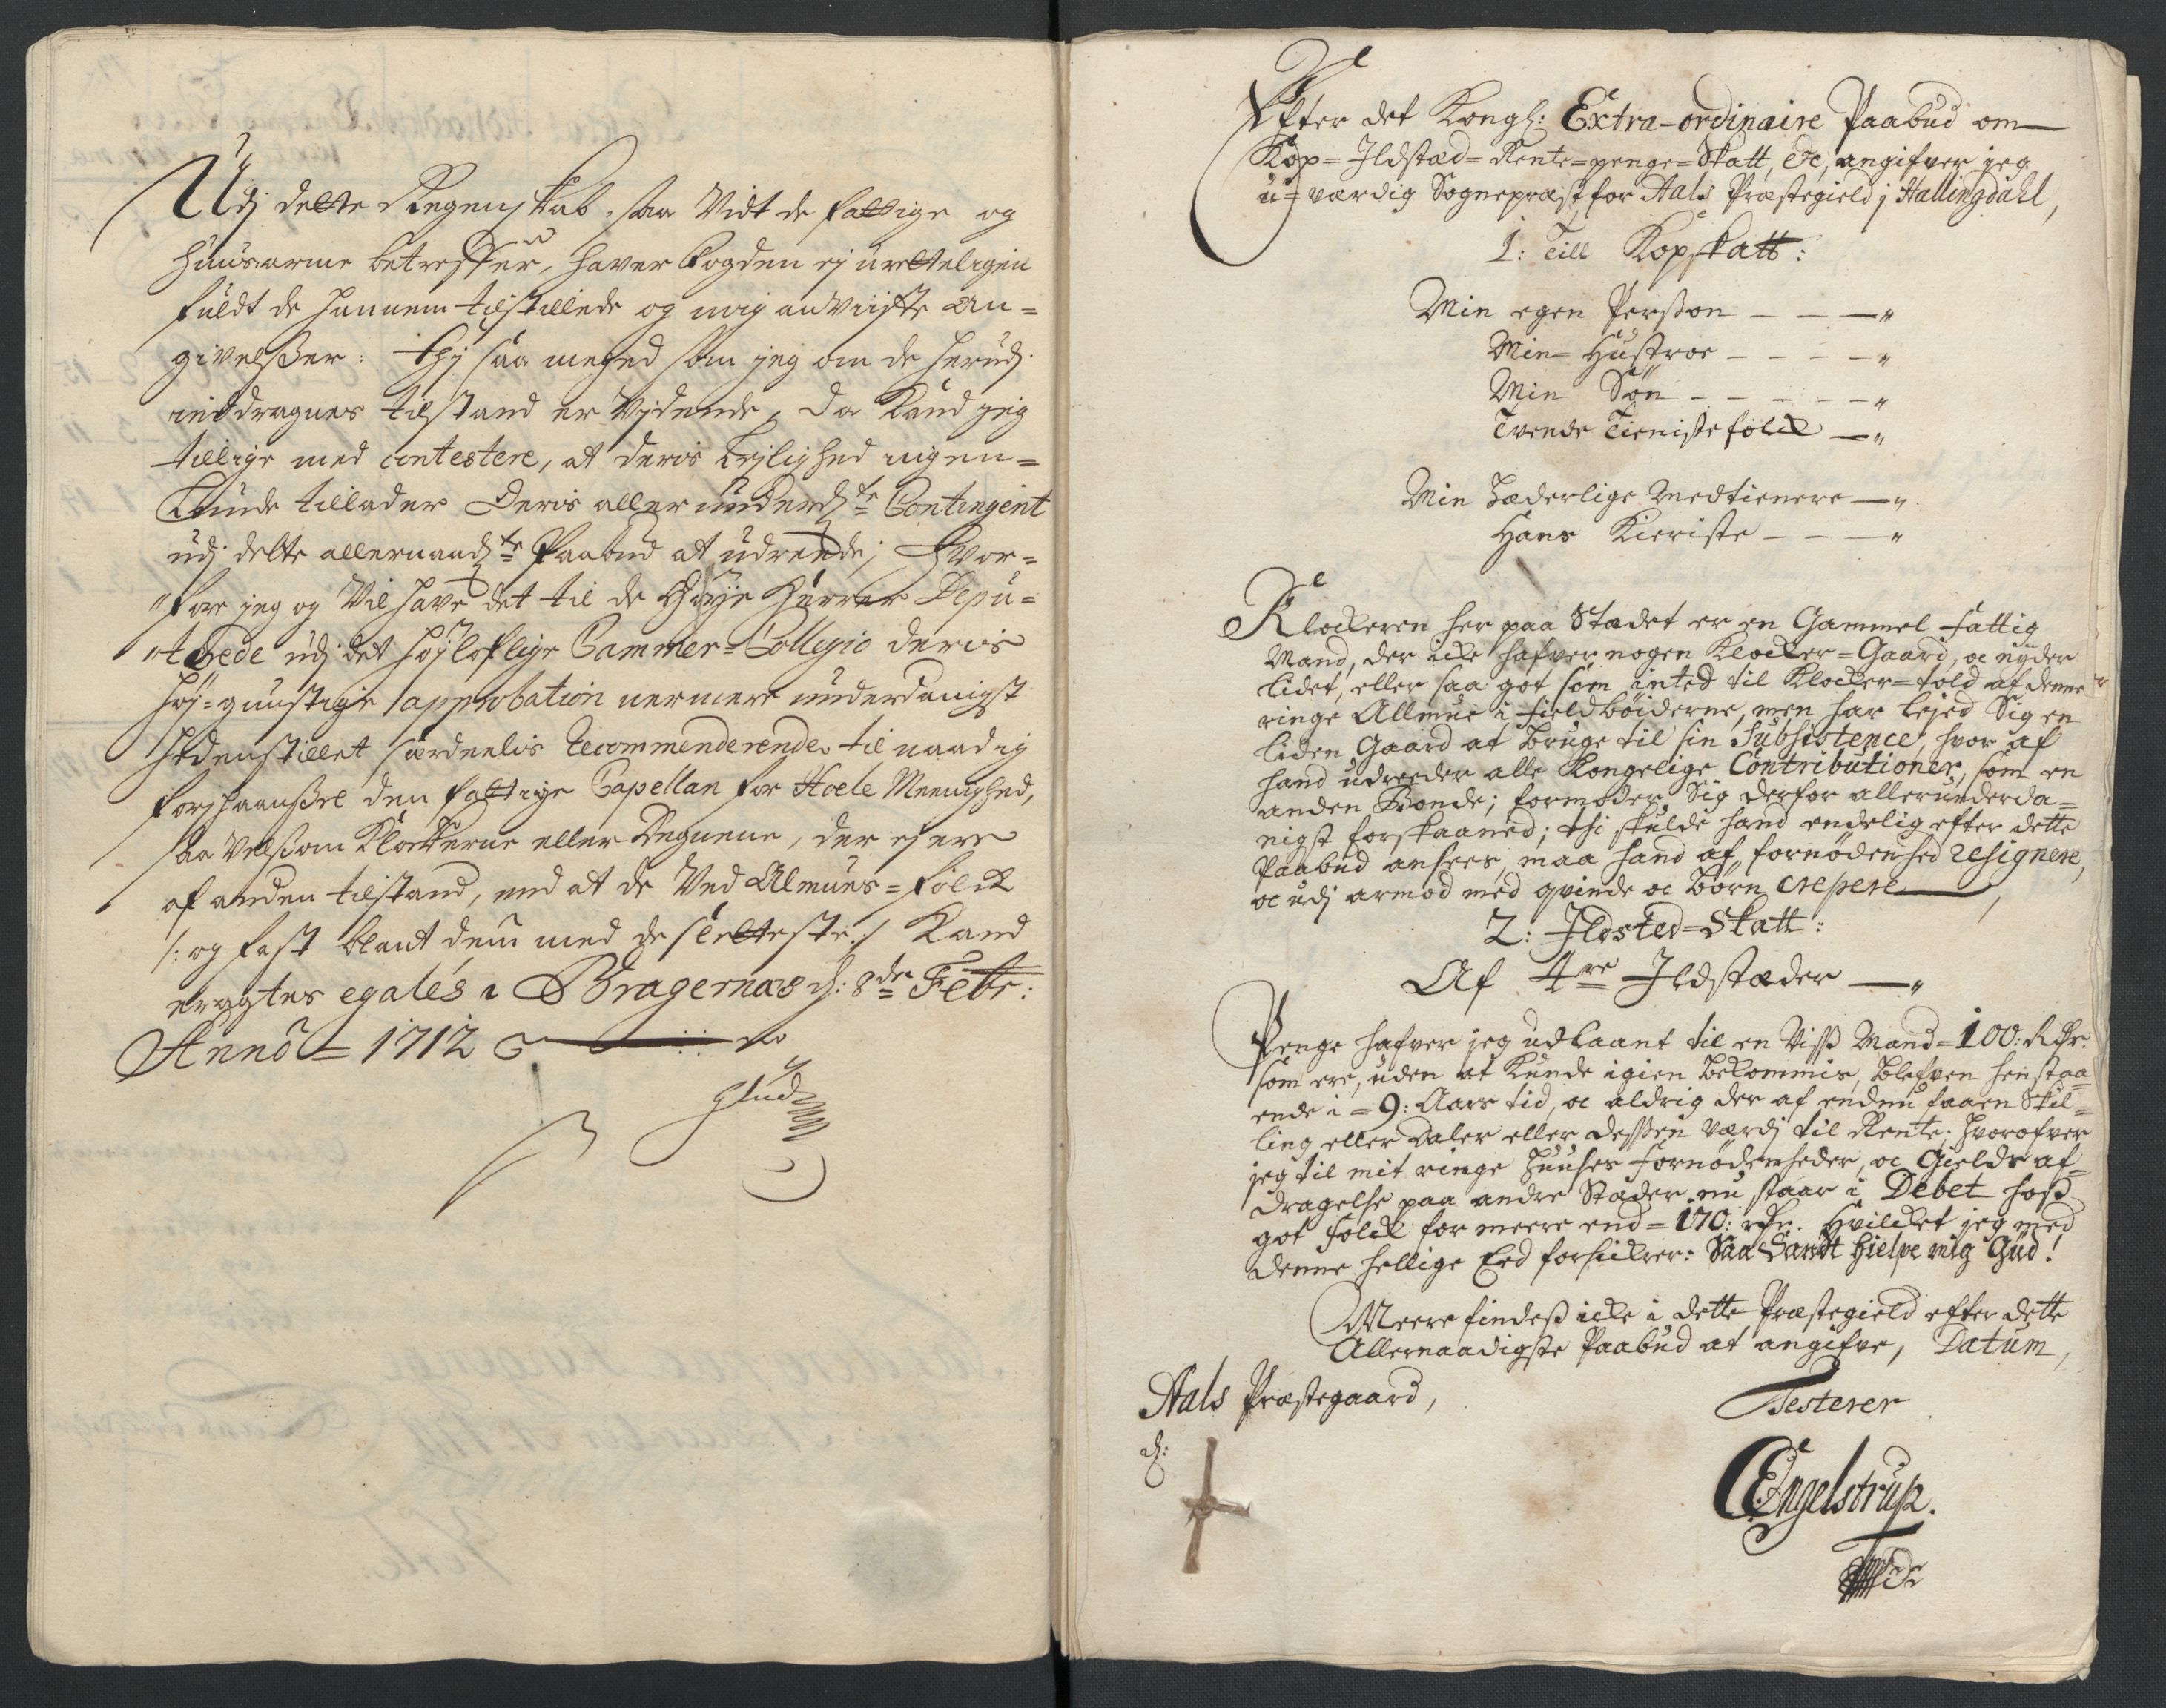 Udj dette Regenskab, saa Vidt de fattige og
huusarme betreffer, haver Fogden ej uretteligen
fuldt de hannem tilstillede og mig anviiste An=
givelsser: thj saa meged som jeg om de herudj
inddragnes tilstand er Vidende, da Kand jeg
tillige med contestere, at deris Lejlighed ingen=
lunde tillader Deris allerunderdste Contingent
udj dette allernaadste Paabud at udreede; hvor=
fore jeg og Vil have det til de Høje Herrer Depu=
terede udj det højloflige Cammer=Collegio deris
høj=gunstige approbation nermere underdanigst
hedenstillet særdeelis Recommenderende til naadig
forskaanssel den fattige Capellan for Hoele Meenighed,
saa velsom Klokkerne eller Degnene, der ej ere
af anden tilstand, end at de Ved Almues=folck
/: og fast blant dem med de sletteste :/ Kand
eragtes egales. Bragernæs d: 8de Febr:
Anno = 1712
Efter det Kongl: Extra-ordinaire Paabud om
Kop= Ildstæd= Rente=penge=Skatt, etc, angifver jeg
u=værdig Sognepræst for Aals Præstegield j Hallingdahl,
1: Till Kopskatt:
Min egen Persson - - - "
Min Hustroe - - - - "
Min Søn - - - - - "
Tvende Tienistefolck - "
Min Hæderlige Medtienere - "
Hans Kieriste - - - "
Klockeren her paa Stædet er en Gammel fattig
Mand, der icke hafver nogen Klocker=Gaard, oc nyder
lidet, eller saa got som inted til Klocker=told af denne
ringe Allmue i fieldbøiderne, men har lejed Sig en
liden Gaard at bruge til sin Subsistence, hvor af
hand udreeder alle Kongelige Contributioner, som en
anden Bonde; formoder Sig derfor allerunderda=
nigst forskaaned; thi skulde hand endelig efter dette
Paabud ansees, maa hand af fornødenhed resignere,
oc udj armod med qvinde oc børn crepere,
2: Ildsted=Skatt:
Af 4re Ildstæder - "
Penge hafver jeg udlaant til en Viss Mand = 100: Rdr.
som ere, uden at kunde igien bekommis, blefven henstaa=
ende i = 9: Aars tid, oc aldrig der af endnu faaen Skil=
ling eller Daler eller dessen værdj til Rente; hvorofver
jeg til mit ringe Huuses fornødenheder, oc Gields af=
dragelse paa andre Stæder nu staar i Debet hoss
got folck for meere end = 170: rdr. Hvilcket jeg med
denne hellige Eed forsickrer: Saa Sandt hielpe mig Gud!
Meere findess icke i dette Præstegield efter dette
Allernaadigste Paabud at angifve, Datum,
Aals Præstegaard,
d:
Testerer
CEngelstrup.